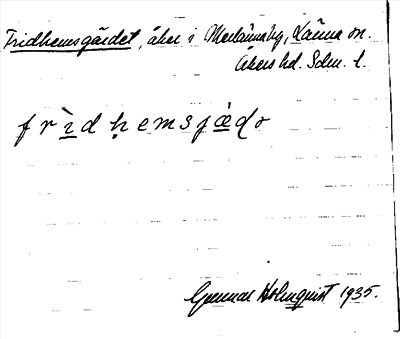 Fridhemsgärdet, åker i Merlännaby, Länna sn.
Åkers hd. Sdm. l.
fr̀ìdhemsjædə
Gunnar Holmquist 1935.